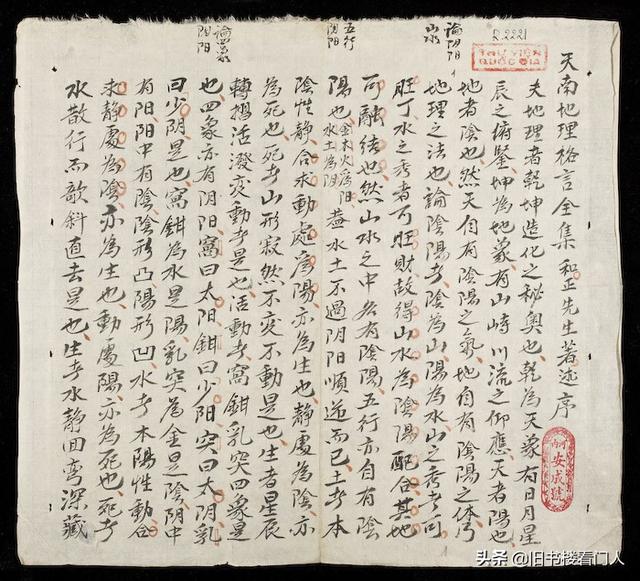 R.2221
THƯ VIỆN
QUỐC GIA
論阴阳
山水
五行
阴阳
論四象
阴阳
天南地理格言全集 和正先生著述序
夫地理者乾坤造化之秘奥也乾為天蒙有日月星
辰之俯鑒坤為地蒙有山峙川流之仰應天者陽也
地者陰也然天自有陰陽之氣地自有陰陽之体乃
地理之法也論陰陽者陰為山陽為水山之秀者可
旺丁水之秀者可旺財故得山水為陰陽配合其地
可融结也然山水之中各有陰陽五行亦自有陰
陽也 金木火為阳 水土為阴 盖水土不過阴阳順逆而已土者本
陰性静合求動處為陽亦為生也静處為陰亦
為死也死者山形寂然不变不動是也生者星辰
轉摺活潑变動者是也活動者窩鉗乳突四象是
也四象亦有阴阳窩曰太阳鉗曰少阳突曰太阴乳
曰少阴是也窩鉗為水是陽乳突為金是陰陰中
有阳阳中有陰陰形凸陽形凹水者本陽性動合
求静處為陰亦為生也動處陽亦為死也死者
水散行而欹斜直去是也生者水静回弯深藏
河内
安成號
头条 @旧书楼看门人